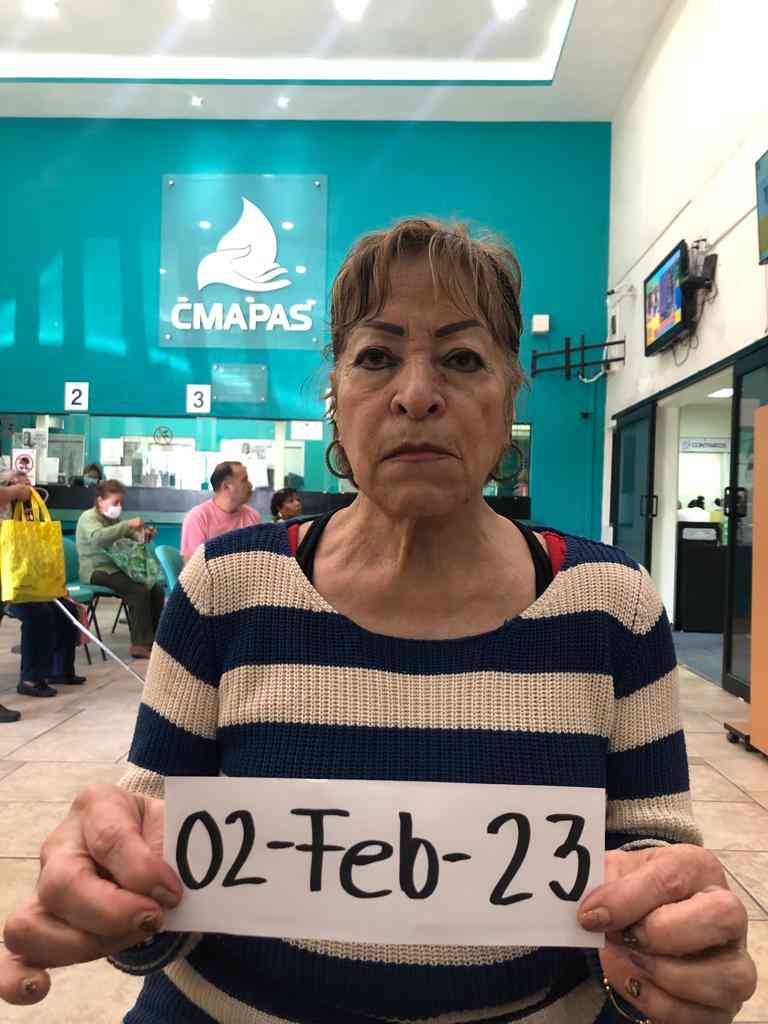 CMAPAS
2
3
CONTRATOS
02-Feb-23